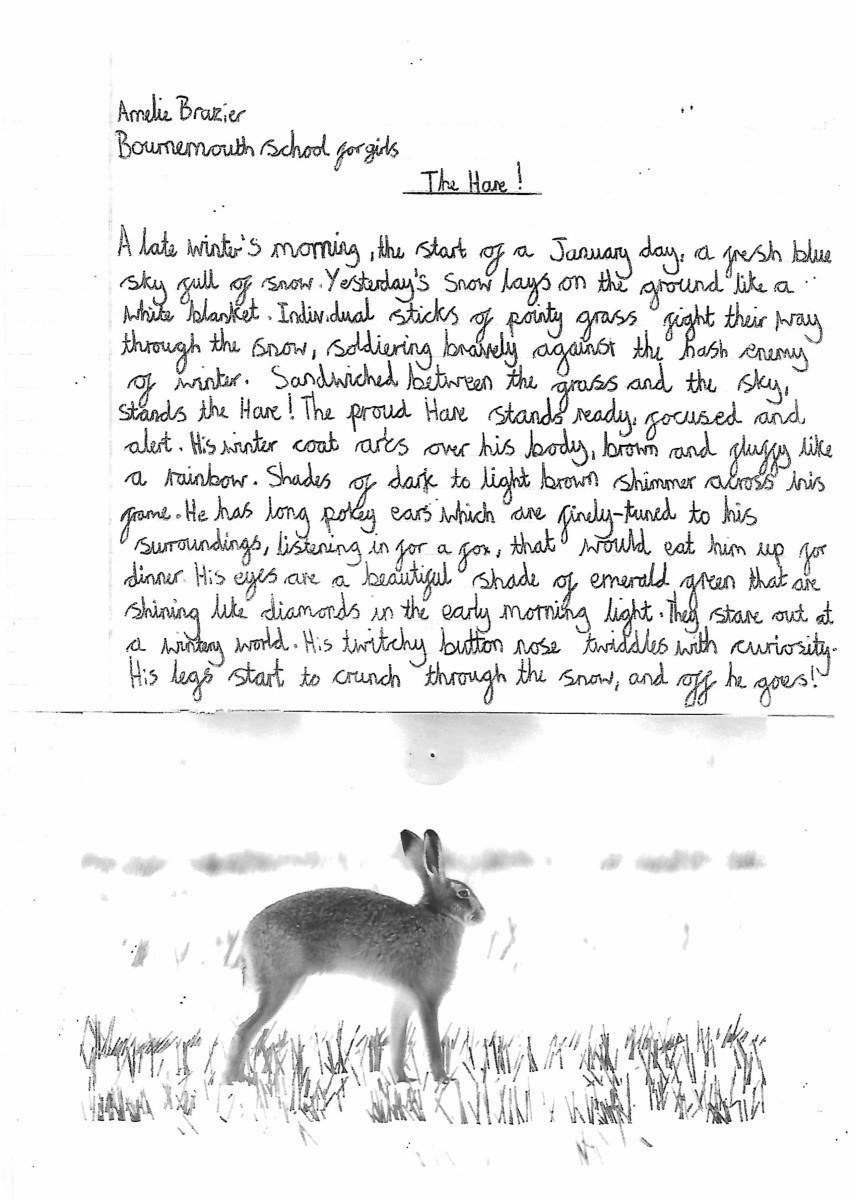 Amelie Brazier
Bournemouth school for girls
The Hare!
A late winter's morning, the start of a January day, a fresh blue
sky full of snow. Yesterday's snow lays on the ground like a
white blanket. Individual sticks of pointy grass fight their way
through the snow, soldiering bravely against the hash enemy
of winter. Sandwiched between the grass and the sky,
stands the Hare! The proud Hare stands ready, focused and
alert. His winter coat arks over his body, brown and fluffy like
a rainbow. Shades of dark to light brown shimmer across his
frame. He has long pokey ears which are finely-tuned to his
surroundings, listening in for a fox, that would eat him up for
dinner. His eyes are a beautiful shade of emerald green that are
shining like diamonds in the early morning light. They stare out at
a wintery world. His twitchy button nose twiddles with curiosity.
His legs start to crunch through the snow, and off he goes!